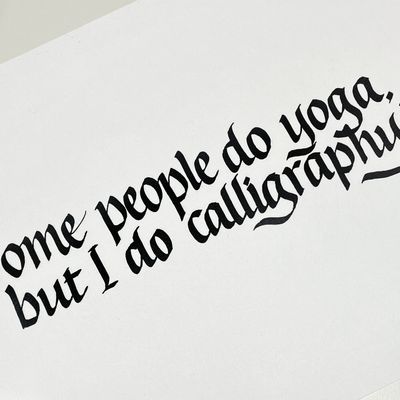 ome people do yoga,
but I do calligraphy